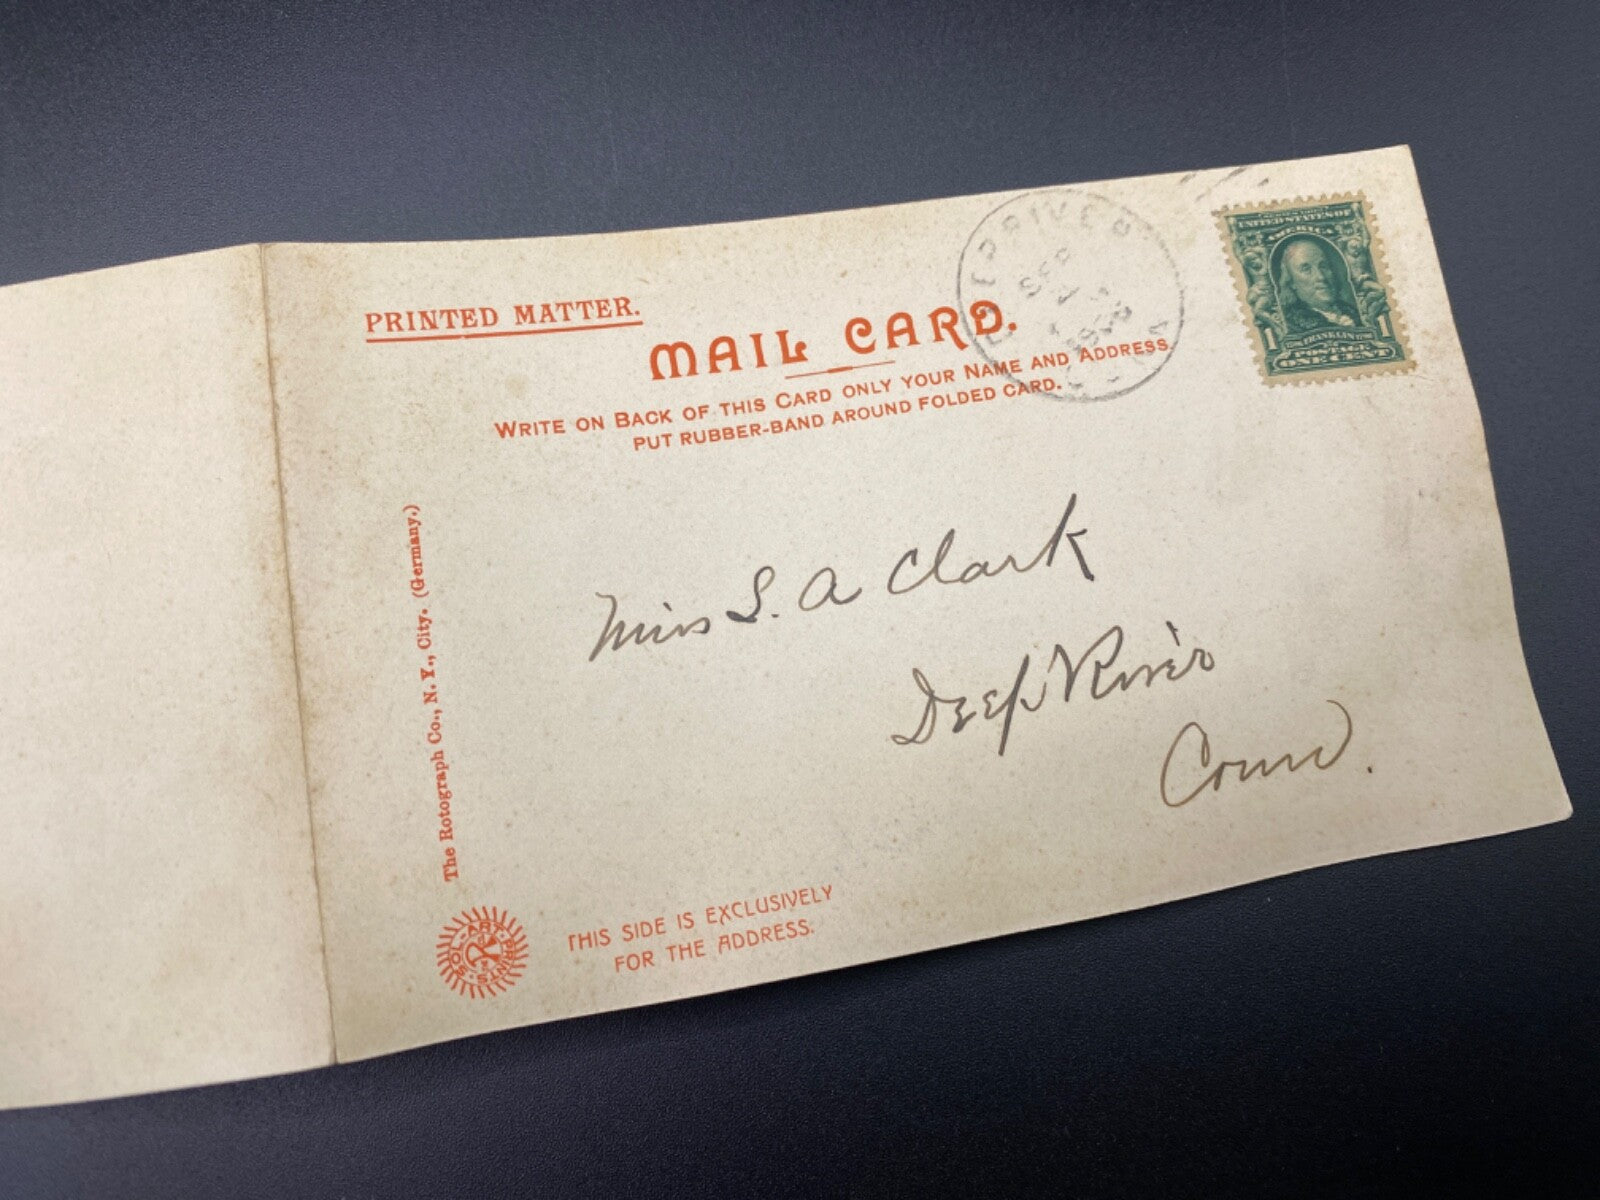 PRINTED MATTER.
MAIL CARD.
WRITE ON BACK OF THIS CARD ONLY YOUR NAME AND ADDRESS
PUT RUBBER-BAND AROUND FOLDED CARD.
DEEP RIVER
SEP
UNITED STATES OF
AMERICA
1 FRANKLIN 1
POSTAGE
ONE CENT
Miss S. A Clark
Deep River
Conn.
The Rotograph Co., N. Y., City. (Germany.)
SOL-ART PRINTS
THIS SIDE IS EXCLUSIVELY
FOR THE ADDRESS.